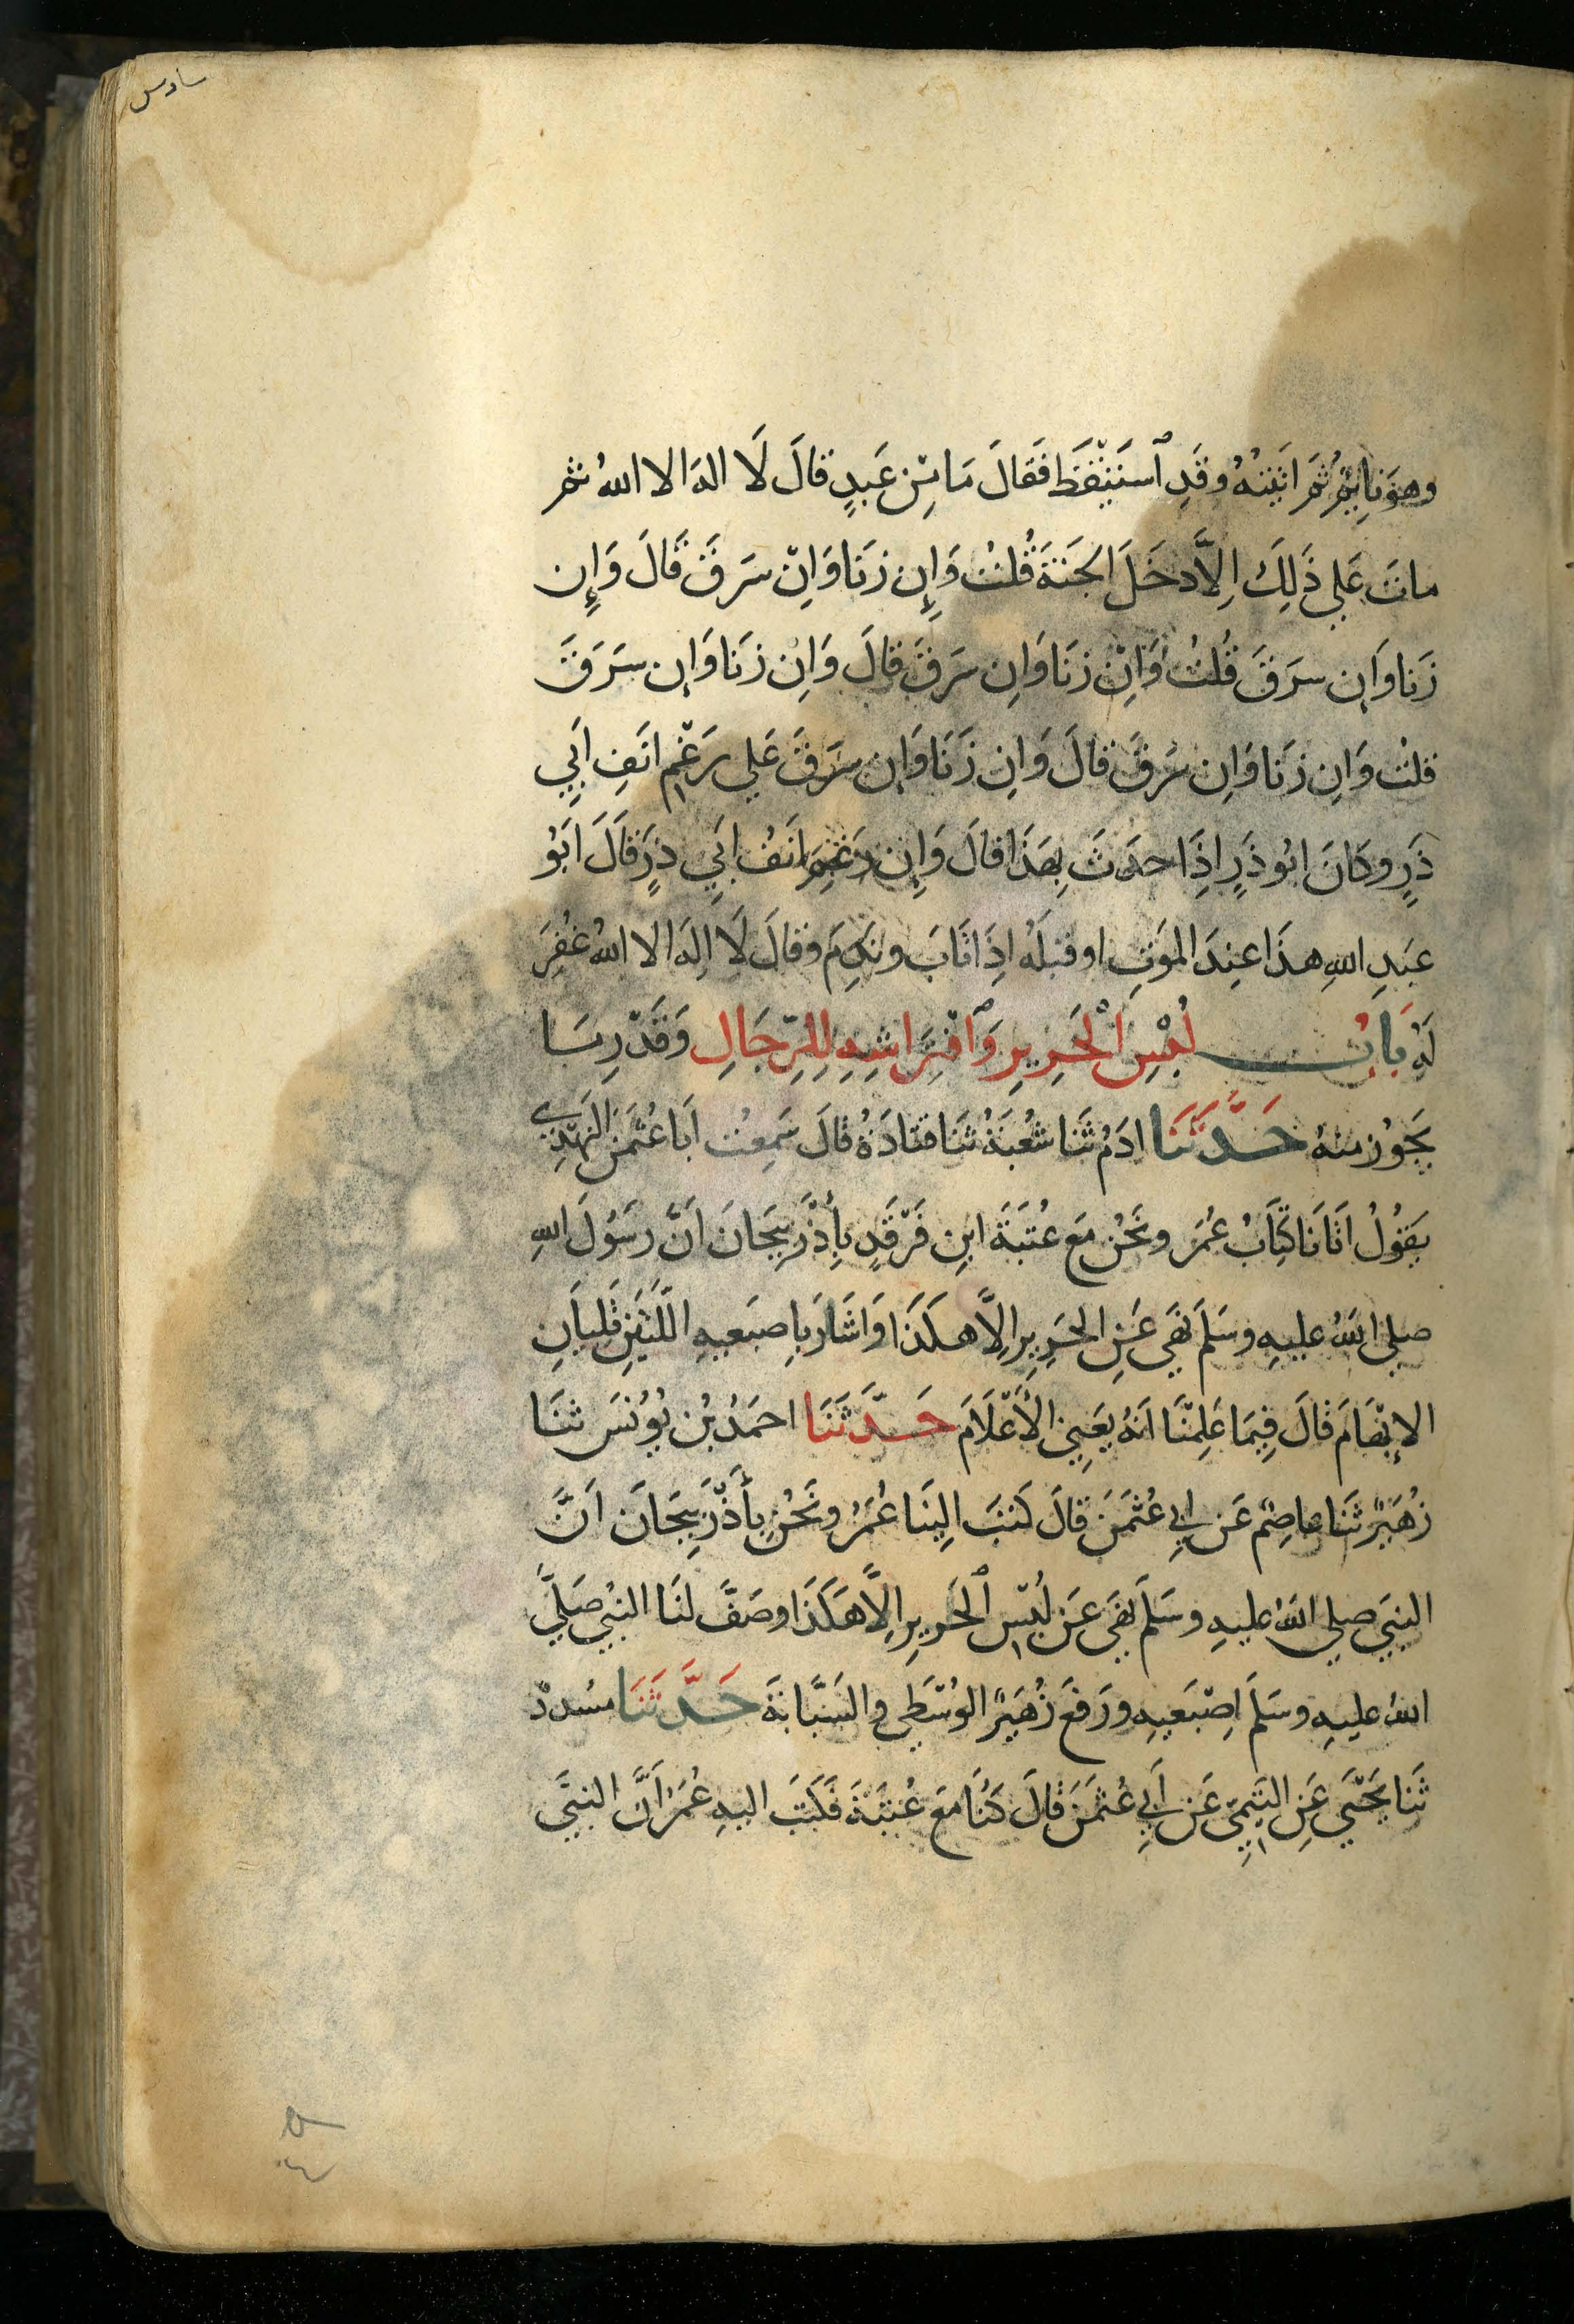 سادس
وهوَ نايِمٌ ثُمَ اَتَيْتُهُ وقَدِ ٱستَيْقَظَ فَقالَ مَا مِن عَبدٍ قالَ لَا الهَ الا اللهُ ثمر
ماتَ عَلي ذَلِكَ اِلاَّ دخَلَ الجَنَةَ قُلتُ وَاِن زَنَا وَاِنْ سَرَقَ قَالَ وَاِن
زَنا وَاِن سرَقَ قُلتُ وَاِنْ زنَا وَاِن سَرقَ قالَ وَاِنْ زَنا وَاِن سَرَقَ
قلتُ وَاِن زنَا وَاِن سَرقَ قالَ وَاِن زَنَا وَاِن سَرَقَ عَلي رَغْمِ انَفِ اَبِي
ذَرٍ وكانَ ابُو ذَرٍ اِذَا حدَثَ بِهَذَا قالَ وَاِن رَغِمَ اَنفُ اَبِي ذَرٍ قَالَ اَبُو
عَبدِ اللهِ هذَا عِندَ الموَتِ او قبلَهُ اِذَا تَابَ ونَدِمَ وقالَ لَا اِلهَ الا اللهُ غُفِرَ
لَهُ بَابُ لُبْسِ الْحَرِيرِ وَٱفْتِرَاشِهِ لِلرِّجَالِ وَقَدْرِ مَا
يَجُوز منهُ حَدَّثَنَا ادَمُ ثنَا شُعبَةُ ثنَا قتادَةُ قالَ سَمِعتُ اَبَا عُثمَنَ النَهْدِيَ
يَقوُلُ اتَانَا كِتَابُ عُمَرَ ونَحنُ مَع عُتبَةَ ابنِ فَرْقَدٍ بِأَذْرَبِيجَانَ اَنَّ رسَوُلَ اللهِ
صلي اللهُ عليهِ وسَلمَ نَهَى عَنِ الحَرِيرِ اِلاَّ هكَذَا وَاشَارَ باِصبَعيهِ اللَتَينِ تَلِيانِ
الاِبْهَامَ قالَ فِيمَا عَلِمْنَا اَنهُ يَعنِي الأَعْلَامَ حَدَّثَنَا احمَدُ بنُ يوُنُسَ ثنَا
زُهَيرٌ ثنَا عاصِمٌ عَن ابِي عُثمَنَ قالَ كَتبَ اِلينَا عُمَرُ ونَحنُ بأَذْرَبيجَانَ اَنَّ
النبيَ صلي اللهُ عليهِ وسَلمَ نهَى عَن لُبْسِ الحَريرِ اِلاَّ هَكَذَا وصَفَّ لنَا النبيُ صَليَّ
اللهُ عليهِ وسَلمَ اِصْبَعيهِ ورَفعَ زُهَيرٌ الوُسْطَي والسَبَّابةَ حَدَّثنَا مسُددٌ
ثَنا يَحْيَي عَنِ التَيمِيّ عَن اَبي عُثمَنَ قالَ كنَا مَع عُتبَةَ فَكَتبَ اليهِ عُمَرُ اَنَّ النبيَّ